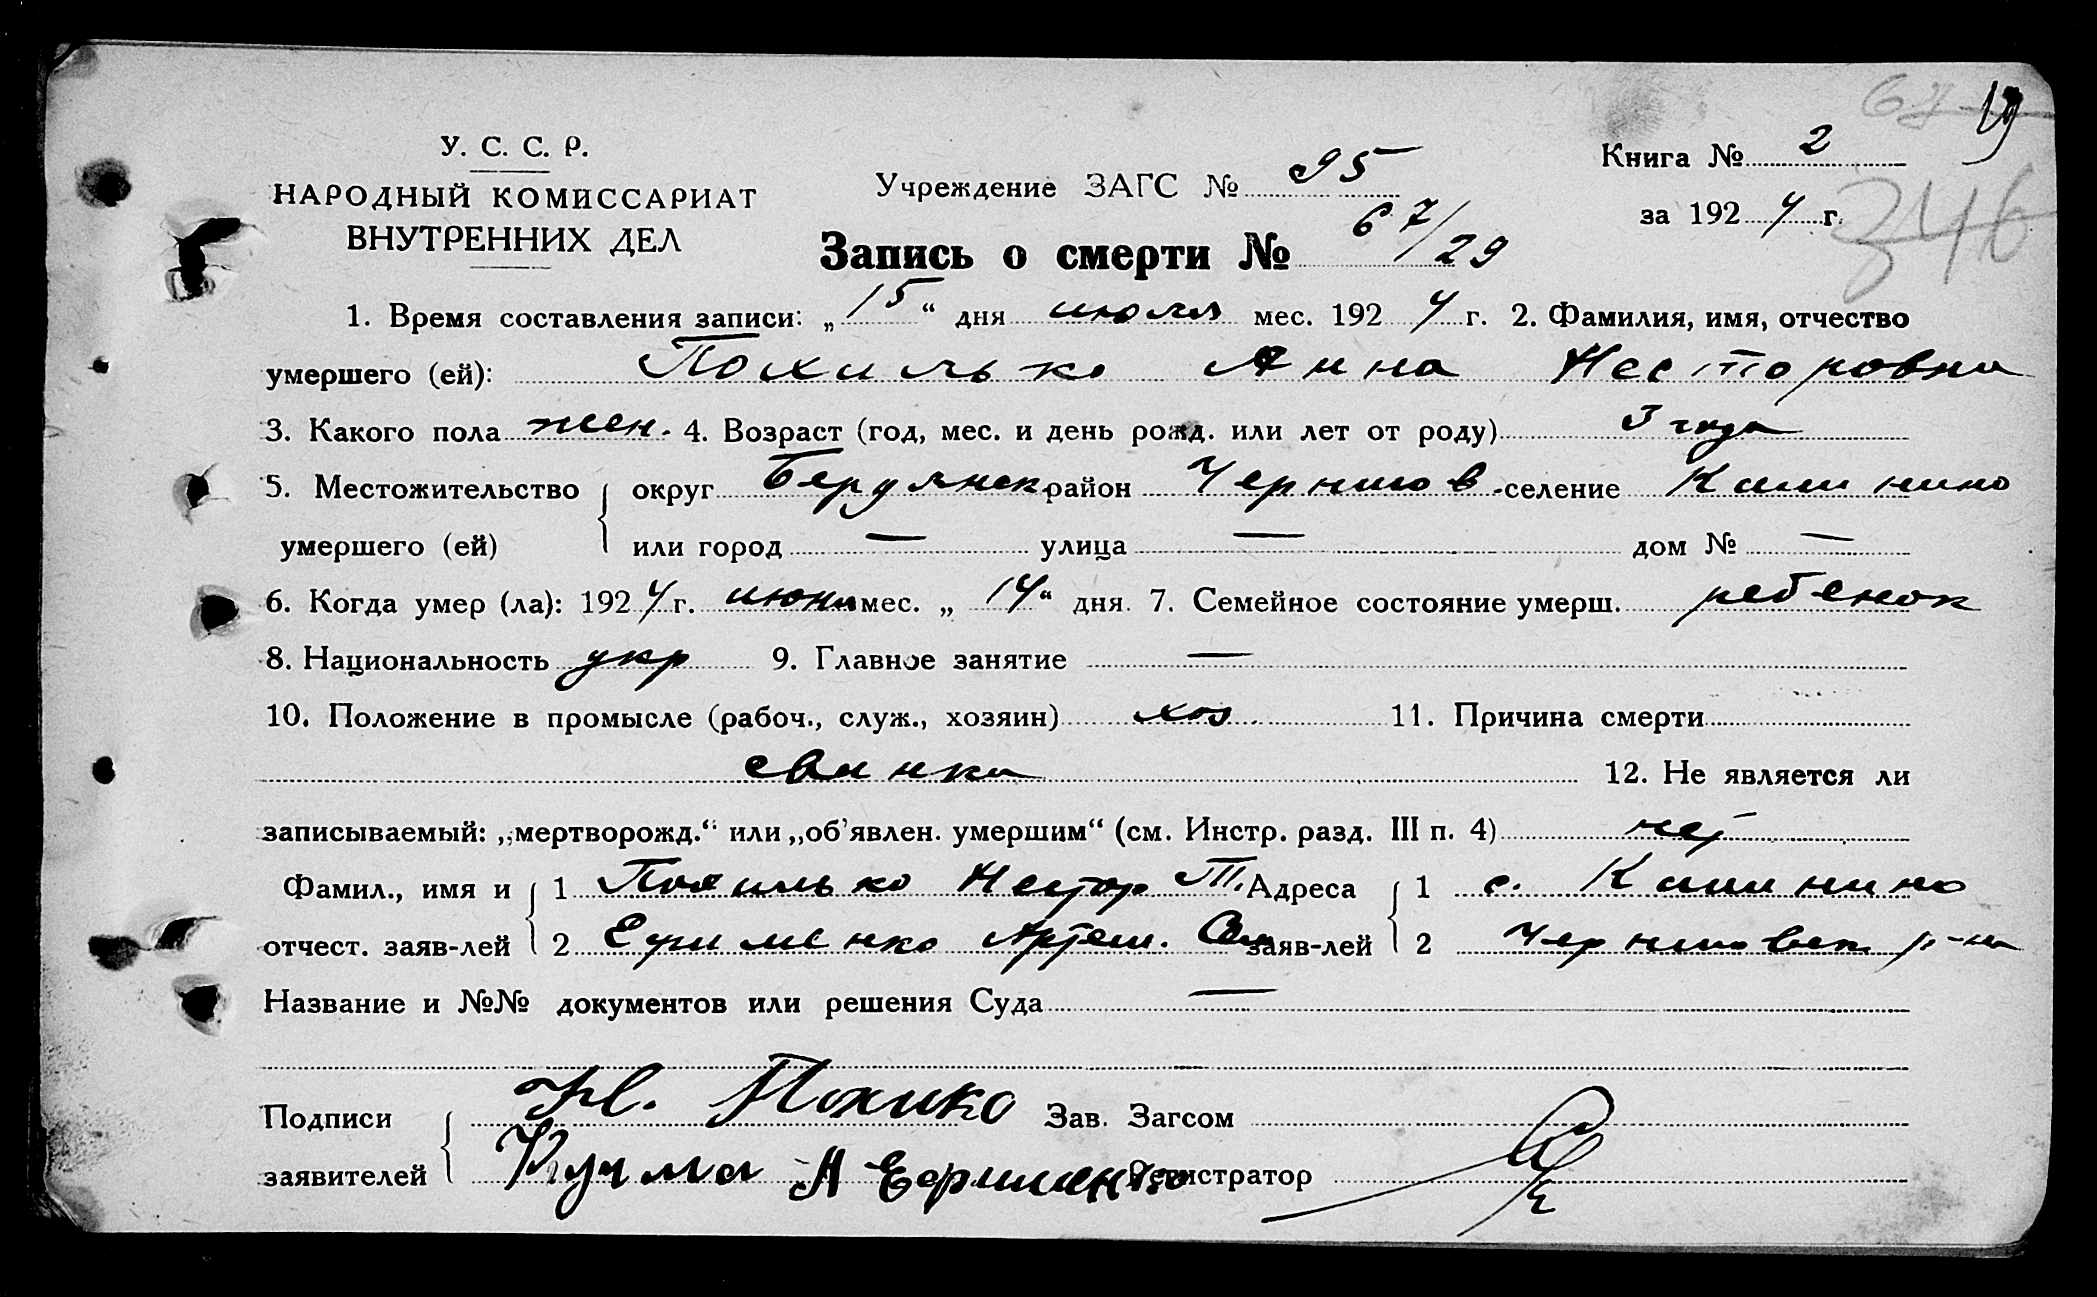 67 19
У. С. С. Р.
НАРОДНЫЙ КОМИССАРИАТ
ВНУТРЕННИХ ДЕЛ
Учреждение ЗАГС № 95
Книга № 2
за 1924 г.
346
Запись о смерти № 67/29
1. Время составления записи: „15“ дня июля мес. 1924 г. 2. Фамилия, имя, отчество
умершего (ей): Похилько Анна Несторовна
3. Какого пола жен. 4. Возраст (год, мес. и день рожд. или лет от роду) 3 года
5. Местожительство округ Бердянск район Чернигов. селение Калинино
умершего (ей) или город — улица — дом № —
6. Когда умер (ла): 1924 г. июня мес. „14“ дня. 7. Семейное состояние умерш. ребенок
8. Национальность укр 9. Главное занятие —
10. Положение в промысле (рабоч., служ., хозяин) хоз. 11. Причина смерти
свинка 12. Не является ли
записываемый: „мертворожд.“ или „об’явлен. умершим“ (см. Инстр. разд. III п. 4) нет
Фамил., имя и 1 Похилько Нестор Т. Адреса 1 с. Калинино
отчест. заяв-лей 2 Артем. заяв-лей 2 Черниговск. р-на
Название и №№ документов или решения Суда —
Подписи Н. Похико Зав. Загсом
заявителей Кучма А Регистратор